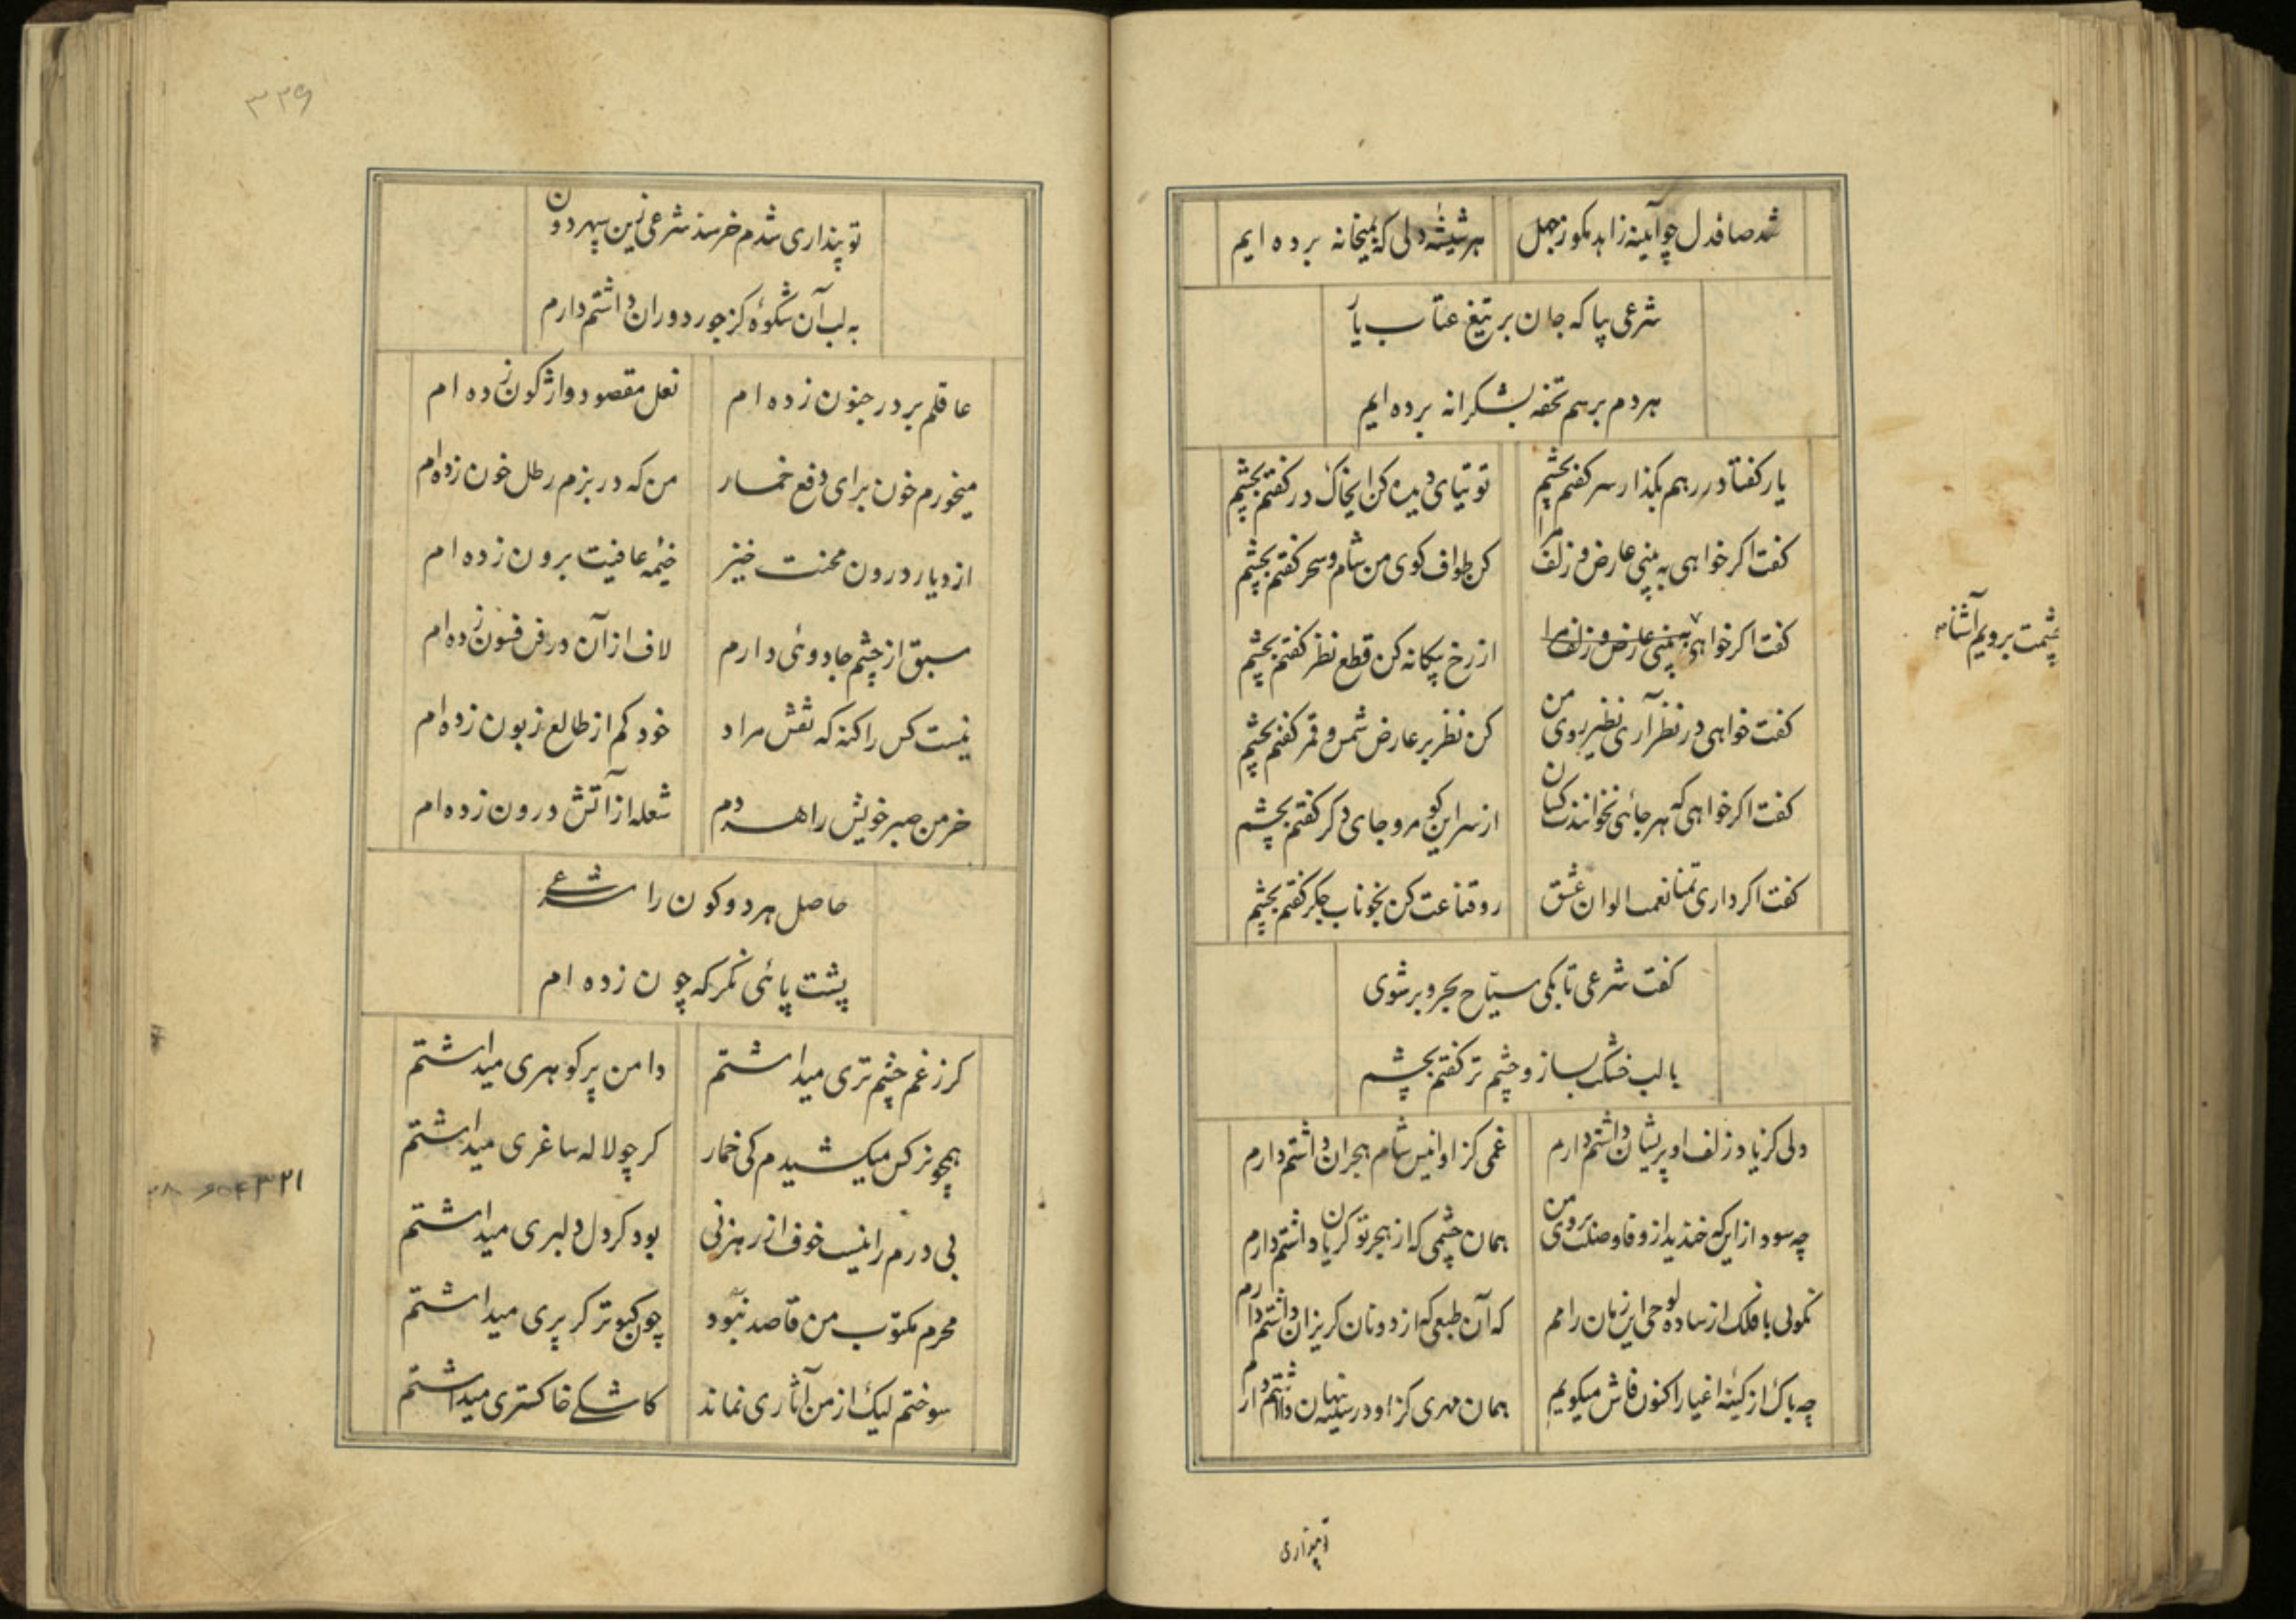 شد صافدل چو آیینه زاهد مکو ز جهل هر شیشه دلی که بمیخانه برده ایم
شرعی بیا که جان بر تیغ عتاب یار
هر دم برسم تحفه بشکرانه برده ایم
یار کفتا در رهم بکذار سر کفتم بچشم توتیای دیده کن این خاک در کفتم بچشم
کفت اکر خواهی به بینی عارض و زلف مرا کن طواف کوی من شام و سحر کفتم بچشم
کفت اکر خواهی به بینی عارض و زلف مرا از رخ بیکانه کن قطع نظر کفتم بچشم
چشمت برویم آشنا
کفت خواهی در نظر آری نظیر روی من کن نظر بر عارض شمس و قمر کفتم بچشم
کفت اکر خواهی که هر جائی نخوانندت کسان از سر این کو مرو جای دکر کفتم بچشم
کفت اکر داری تمنا نعمت الوان عشق رو قناعت کن بخوناب جکر کفتم بچشم
کفت شرعی تا بکی سیاح بحر و بر شوی
با لب خشک بساز و چشم تر کفتم بچشم
دلی کز یاد زلف او پریشان داشتم دارم غمی کز او انیس شام هجران داشتم دارم
چه سود از این که خندید از وفا وصلت بروی من همان چشمی که از هجر تو کریان داشتم دارم
نکوئی با فلک از ساده لوحی این زمان رامم که آن طبعی که از دونان کریزان داشتم دارم
چه باک از کینه اغیار اکنون فاش میکویم همان مهری کز او در سینه پنهان داشتم دارم
تو پنداری
۳۲۹
تو پنداری شدم خرسند شرعی زین سپهر دون
به لب آن شکوه کز جور دوران داشتم دارم
عاقلم بر در جنون زده ام نعل مقصود واژکون زده ام
میخورم خون برای دفع خمار من که در بزم رطل خون زده ام
از دیار درون محنت خیز خیمه عافیت برون زده ام
سبق از چشم جادوئی دارم لاف از آن در فن فسون زده ام
نیست کس را کنه که نقش مراد خود کم از طالع زبون زده ام
خرمن صبر خویش را هر دم شعله از آتش درون زده ام
حاصل هر دو کون را شرعی
پشت پائی نکر که چون زده ام
کر ز غم چشم تری میداشتم دامن پر کوهری میداشتم
همچو نرکس میکشیدم کی خمار کر چو لاله ساغری میداشتم
بی درم را نیست خوف از رهزنی بود کر دل دلبری میداشتم
محرم مکتوب من قاصد نبود چون کبوتر کر پری میداشتم
سوختم لیک از من آثاری نماند کاشکی خاکستری میداشتم
۳۲۱